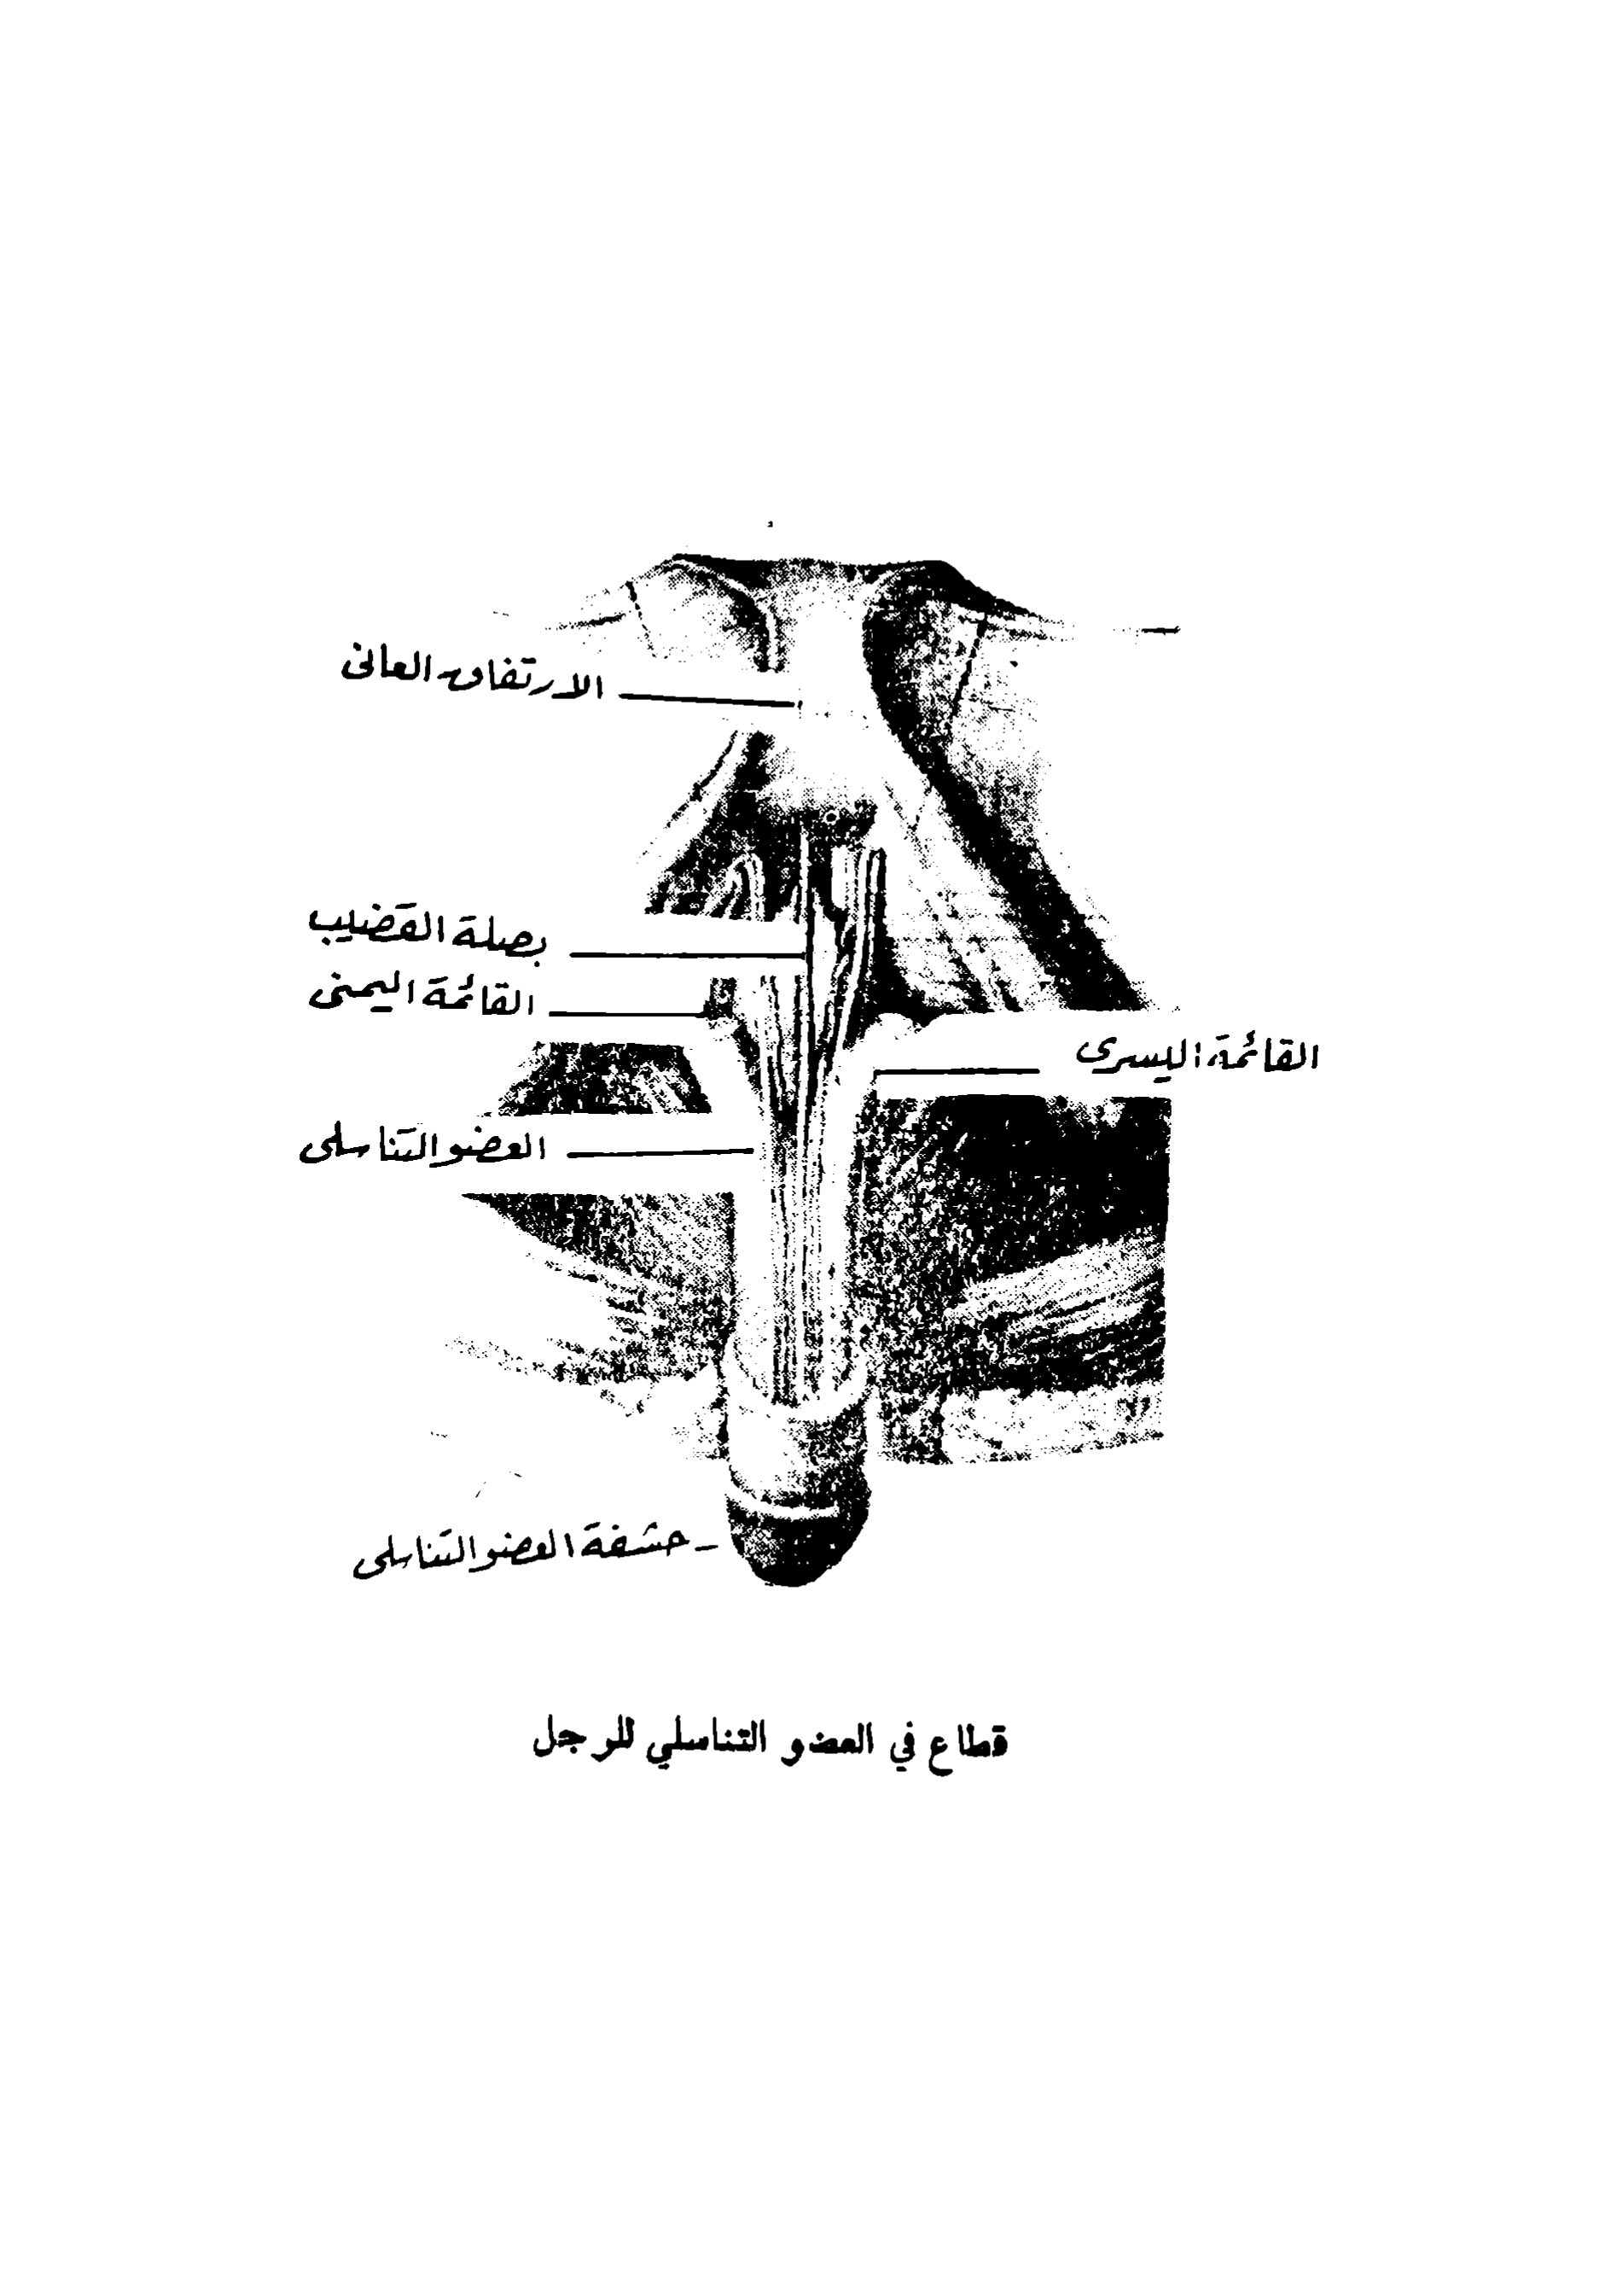 الارتفاق العانى
بصلة القضيب
القائمة اليمنى
القائمة اليسرى
العضو التناسلى
حشفة العضو التناسلى
قطاع في العضو التناسلي للرجل